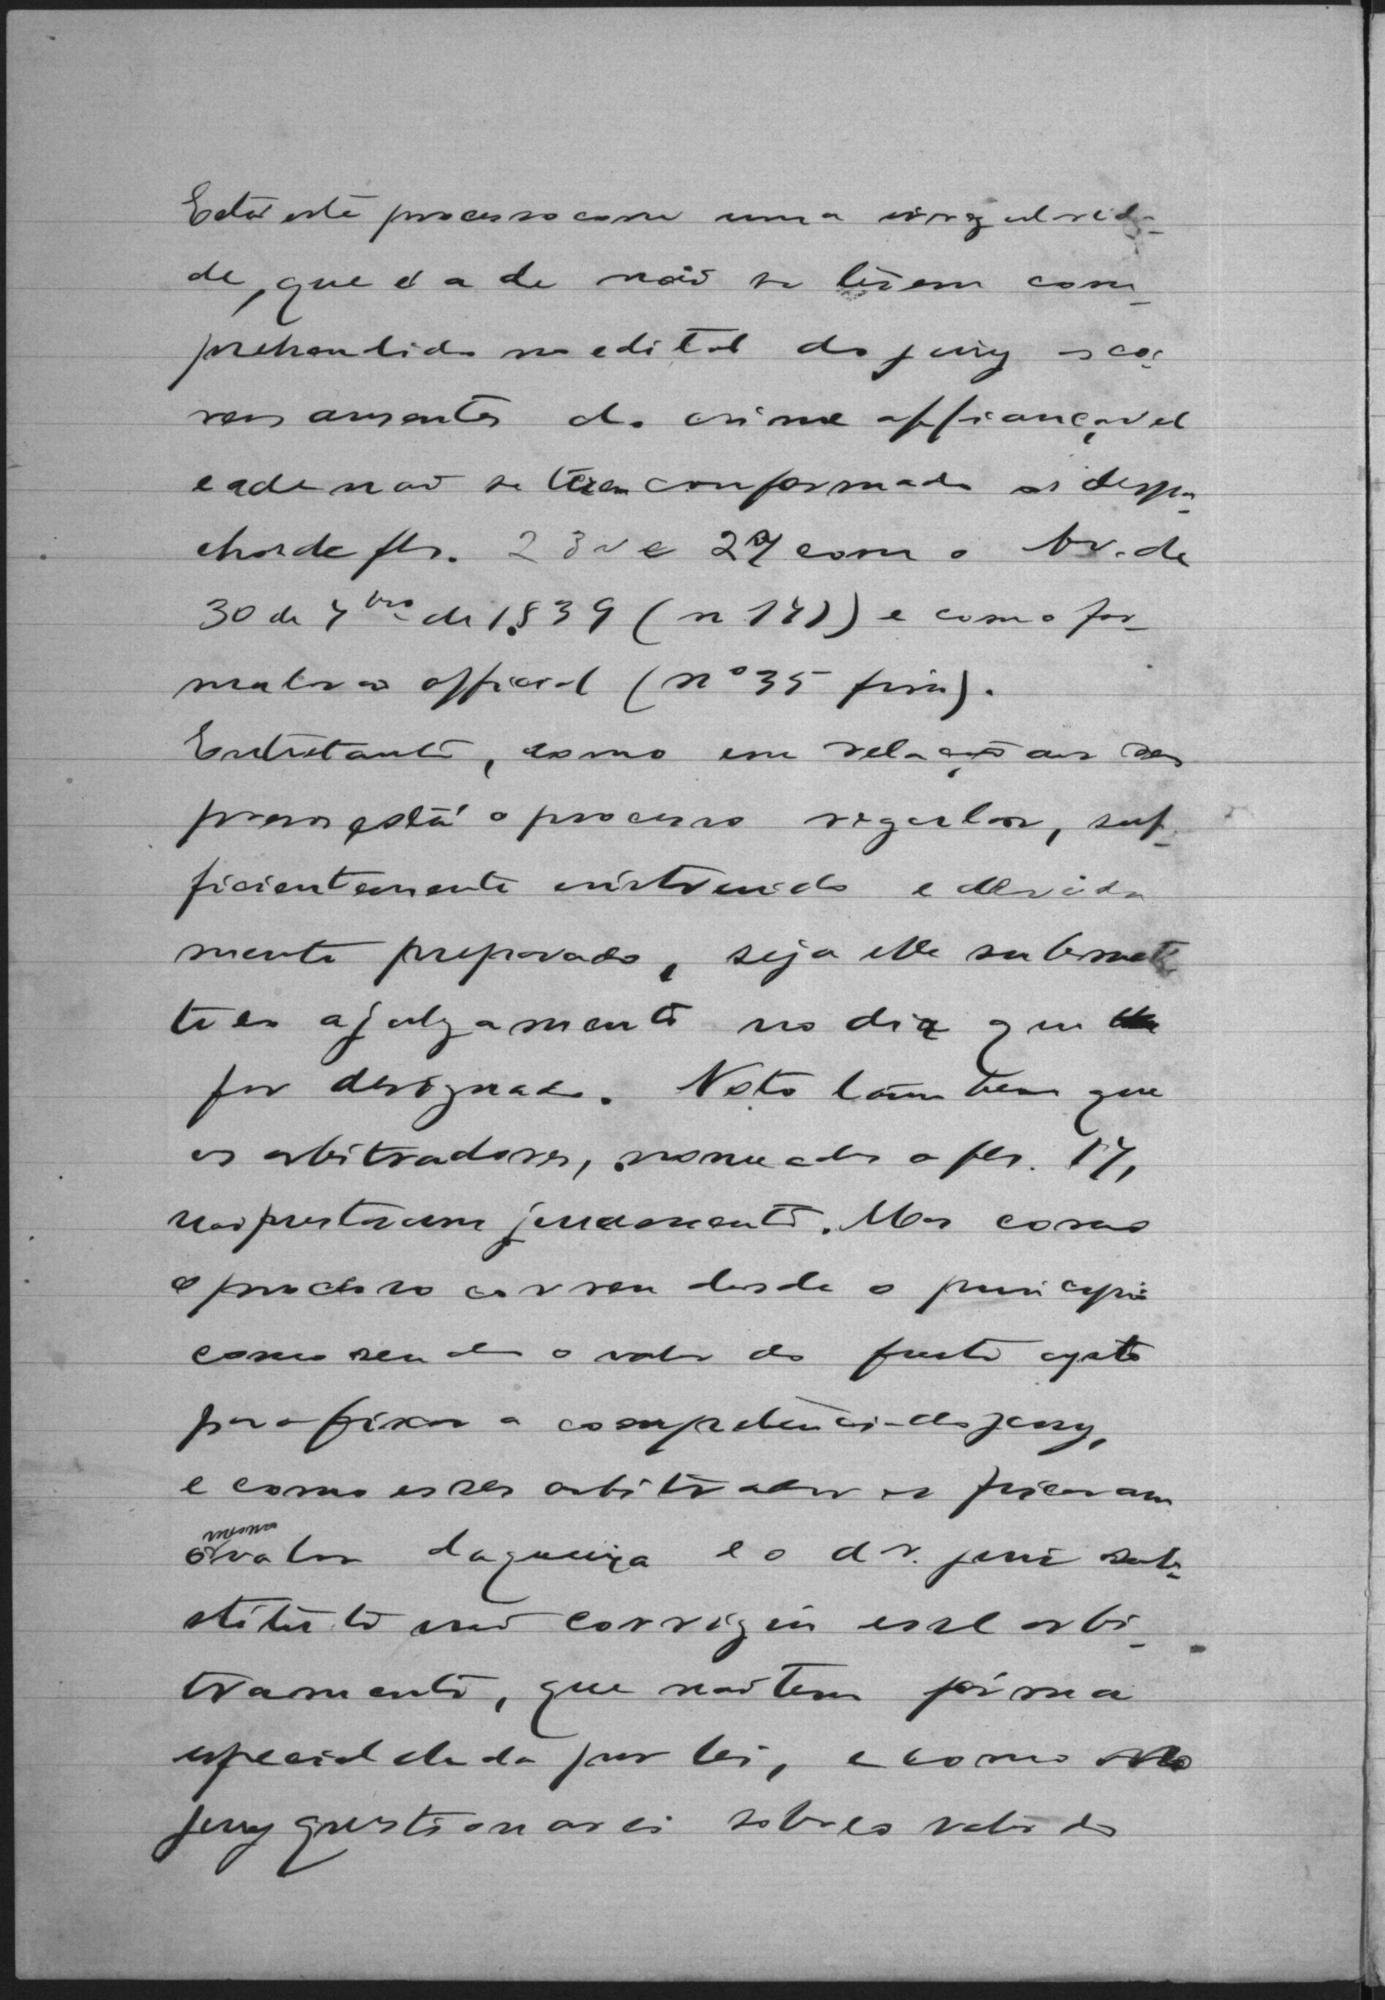 Está este processo com uma irregularida-
de, que é a de não se terem com-
prehendido no edital do jury os co-
reos ausentes do crime affiançavel
e a de não se terem conformado os despa-
chos de fls. 23v e 27 com o Av. de
30 de 7bro de 1839 (n 171) e com o for-
mulario official (nº 35 fim).
Entretanto, como em relação aos reos
presos está o processo regular, suf-
ficientemente instruido e devida
mente preparado, seja elle submet
tido a julgamento no dia que
for designado. Noto tambem que
os arbitradores, nomeados a fls. 17,
não prestaram juramento. Mas como
o processo correu desde o principio
como sendo o valor do furto apto
para fixar a competencia do jury,
e como esses arbitradores fixaram
o valor da e o dr. juiz sub-
stituto não corrigiu esse arbi-
tramento, que não tem fórma
especial dada por lei, e como
jury questionarei sobre o valor do